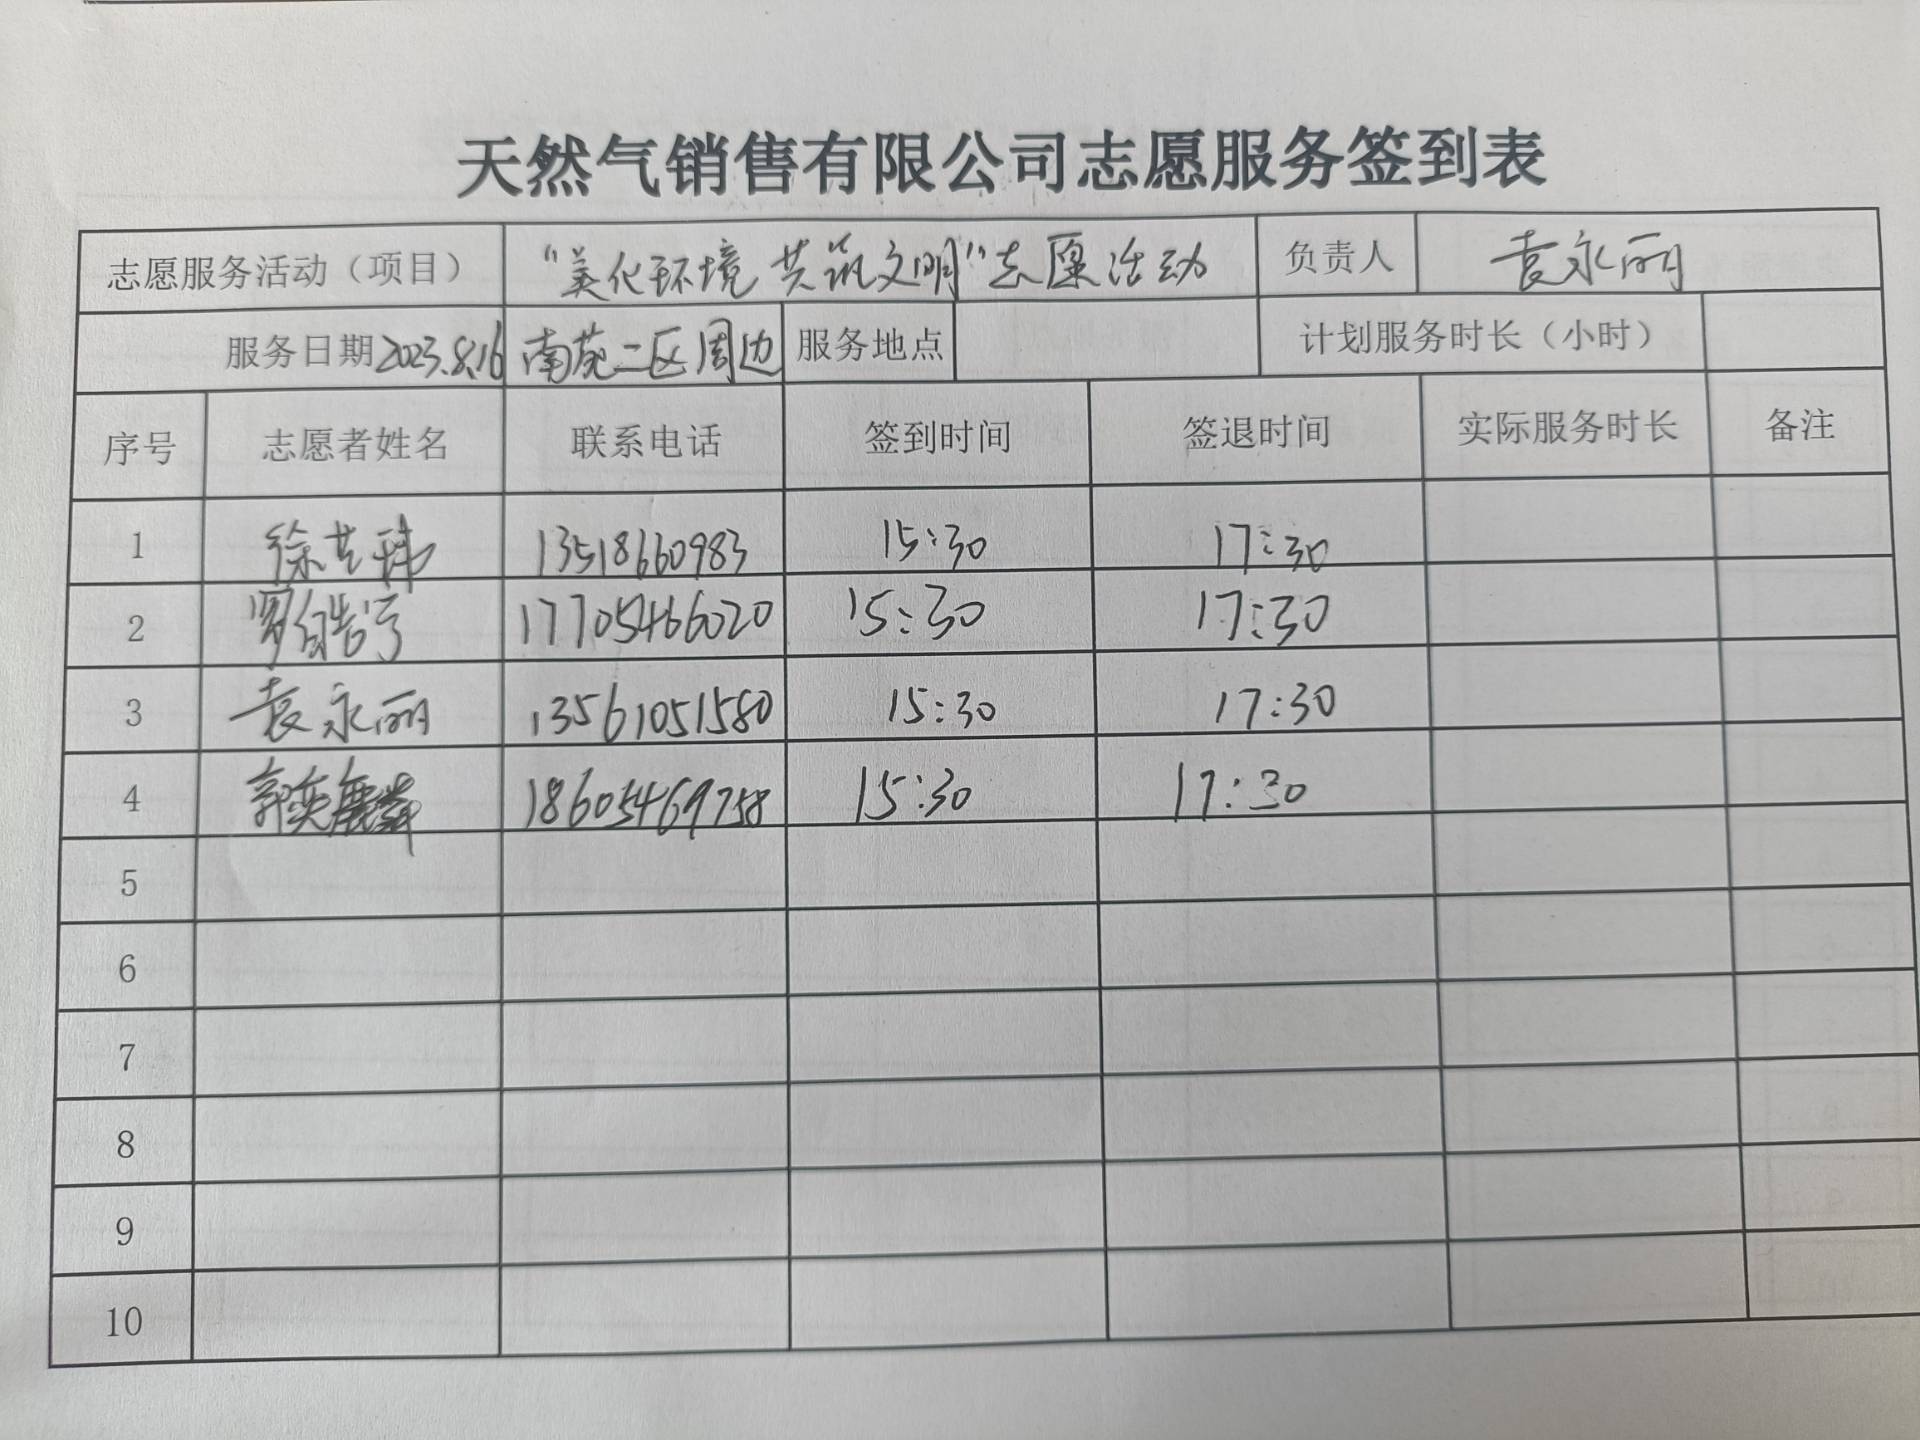 天然气销售有限公司志愿服务签到表
志愿服务活动（项目） "美化环境 共筑文明"志愿活动 负责人 袁永丽
服务日期 2023.8.16 南苑二区周边 服务地点 计划服务时长（小时）
序号 志愿者姓名 联系电话 签到时间 签退时间 实际服务时长 备注
1 13518660983 15:30 17:30
2 17705466020 15:30 17:30
3 袁永丽 13561051580 15:30 17:30
4 18605469758 15:30 17:30
5
6
7
8
9
10